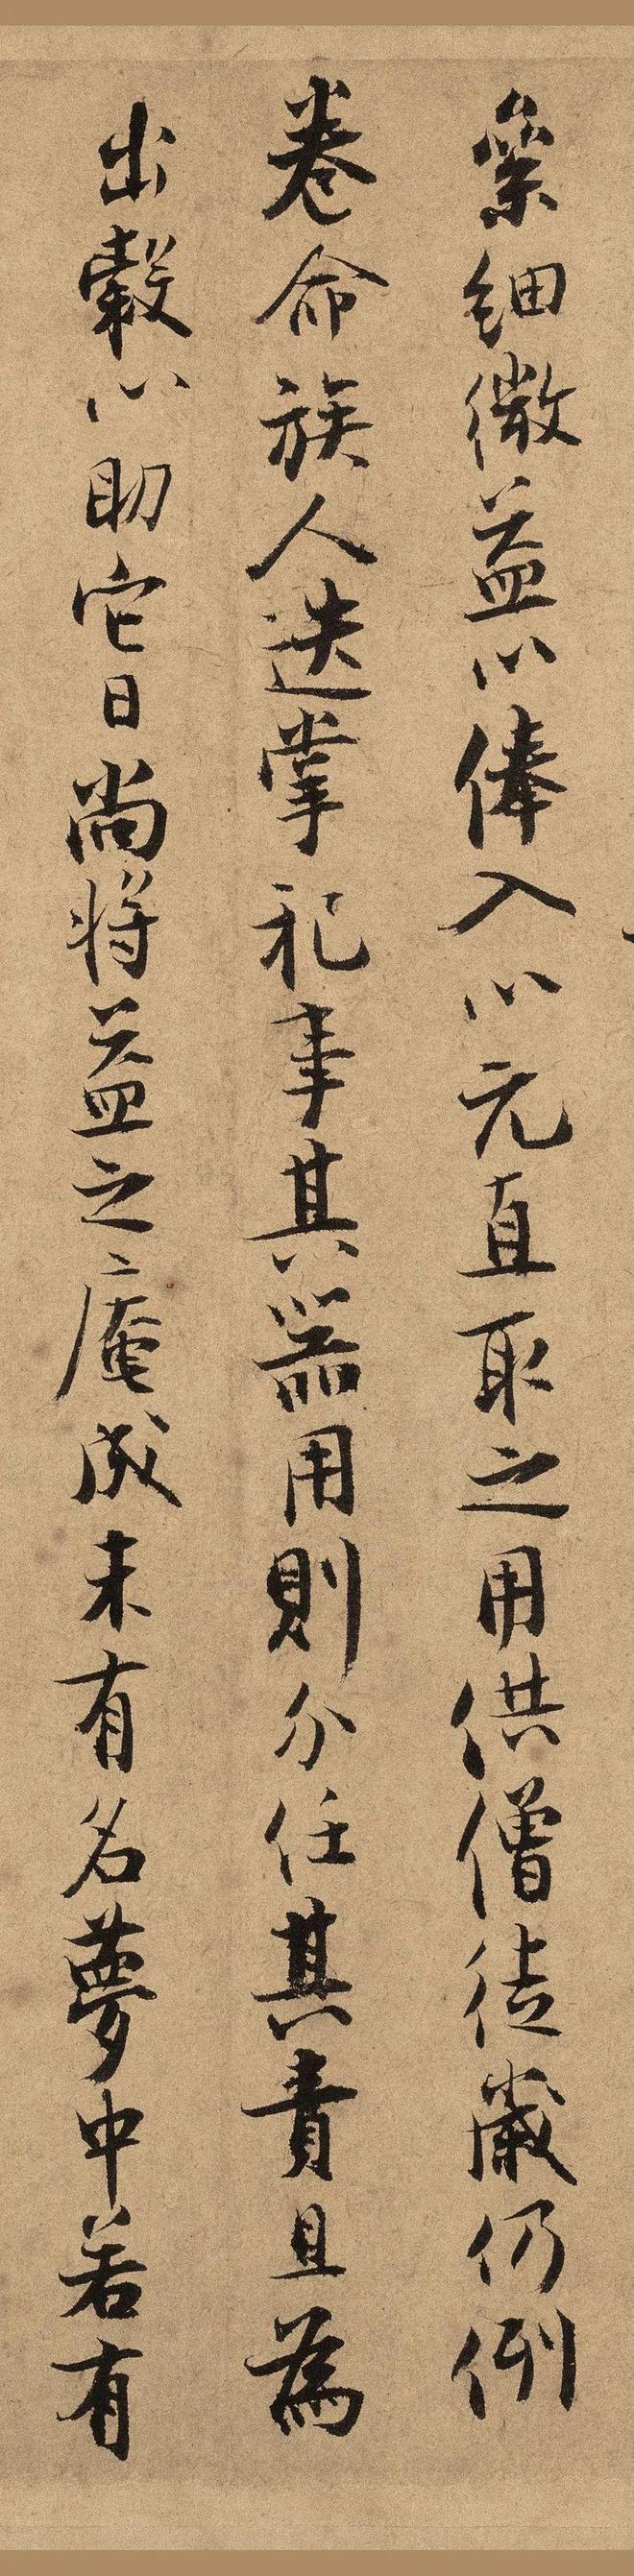 絫細微益以俸入以元直取之用供僧徒歲仍例
卷命族人迭掌祀事其器用則分任其責且為
出穀以助它日尚將益之庵成未有名夢中若有